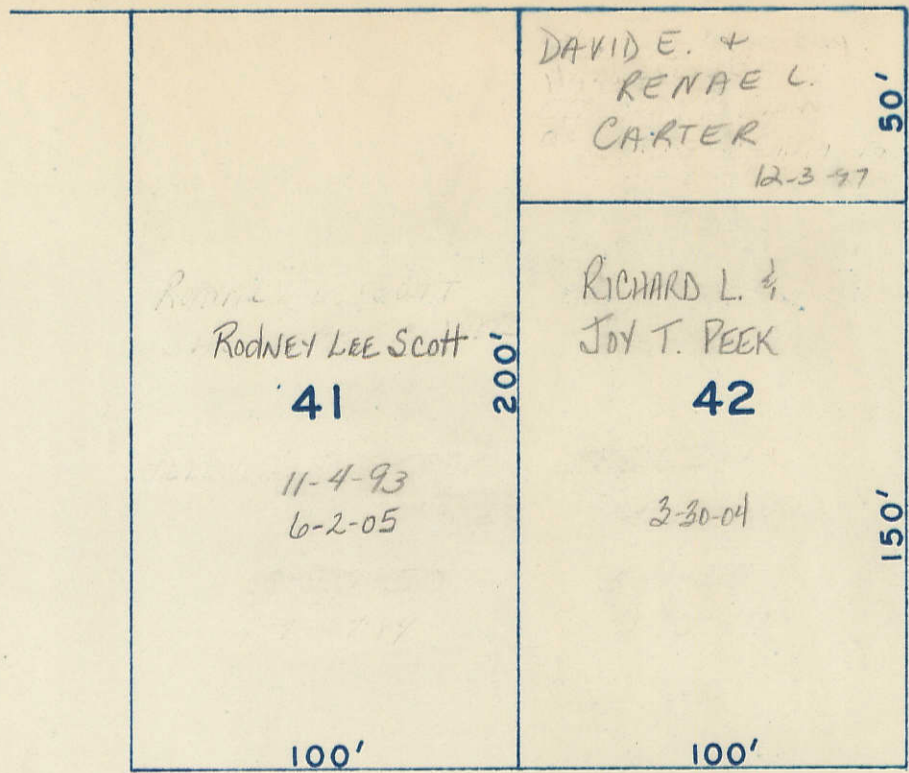 DAVID E. +
RENAE L.
CARTER
12-3-97
50'
Rodney Lee Scott
41
11-4-93
6-2-05
200'
100'
RICHARD L. &
JOY T. PEEK
42
3-30-04
150'
100'